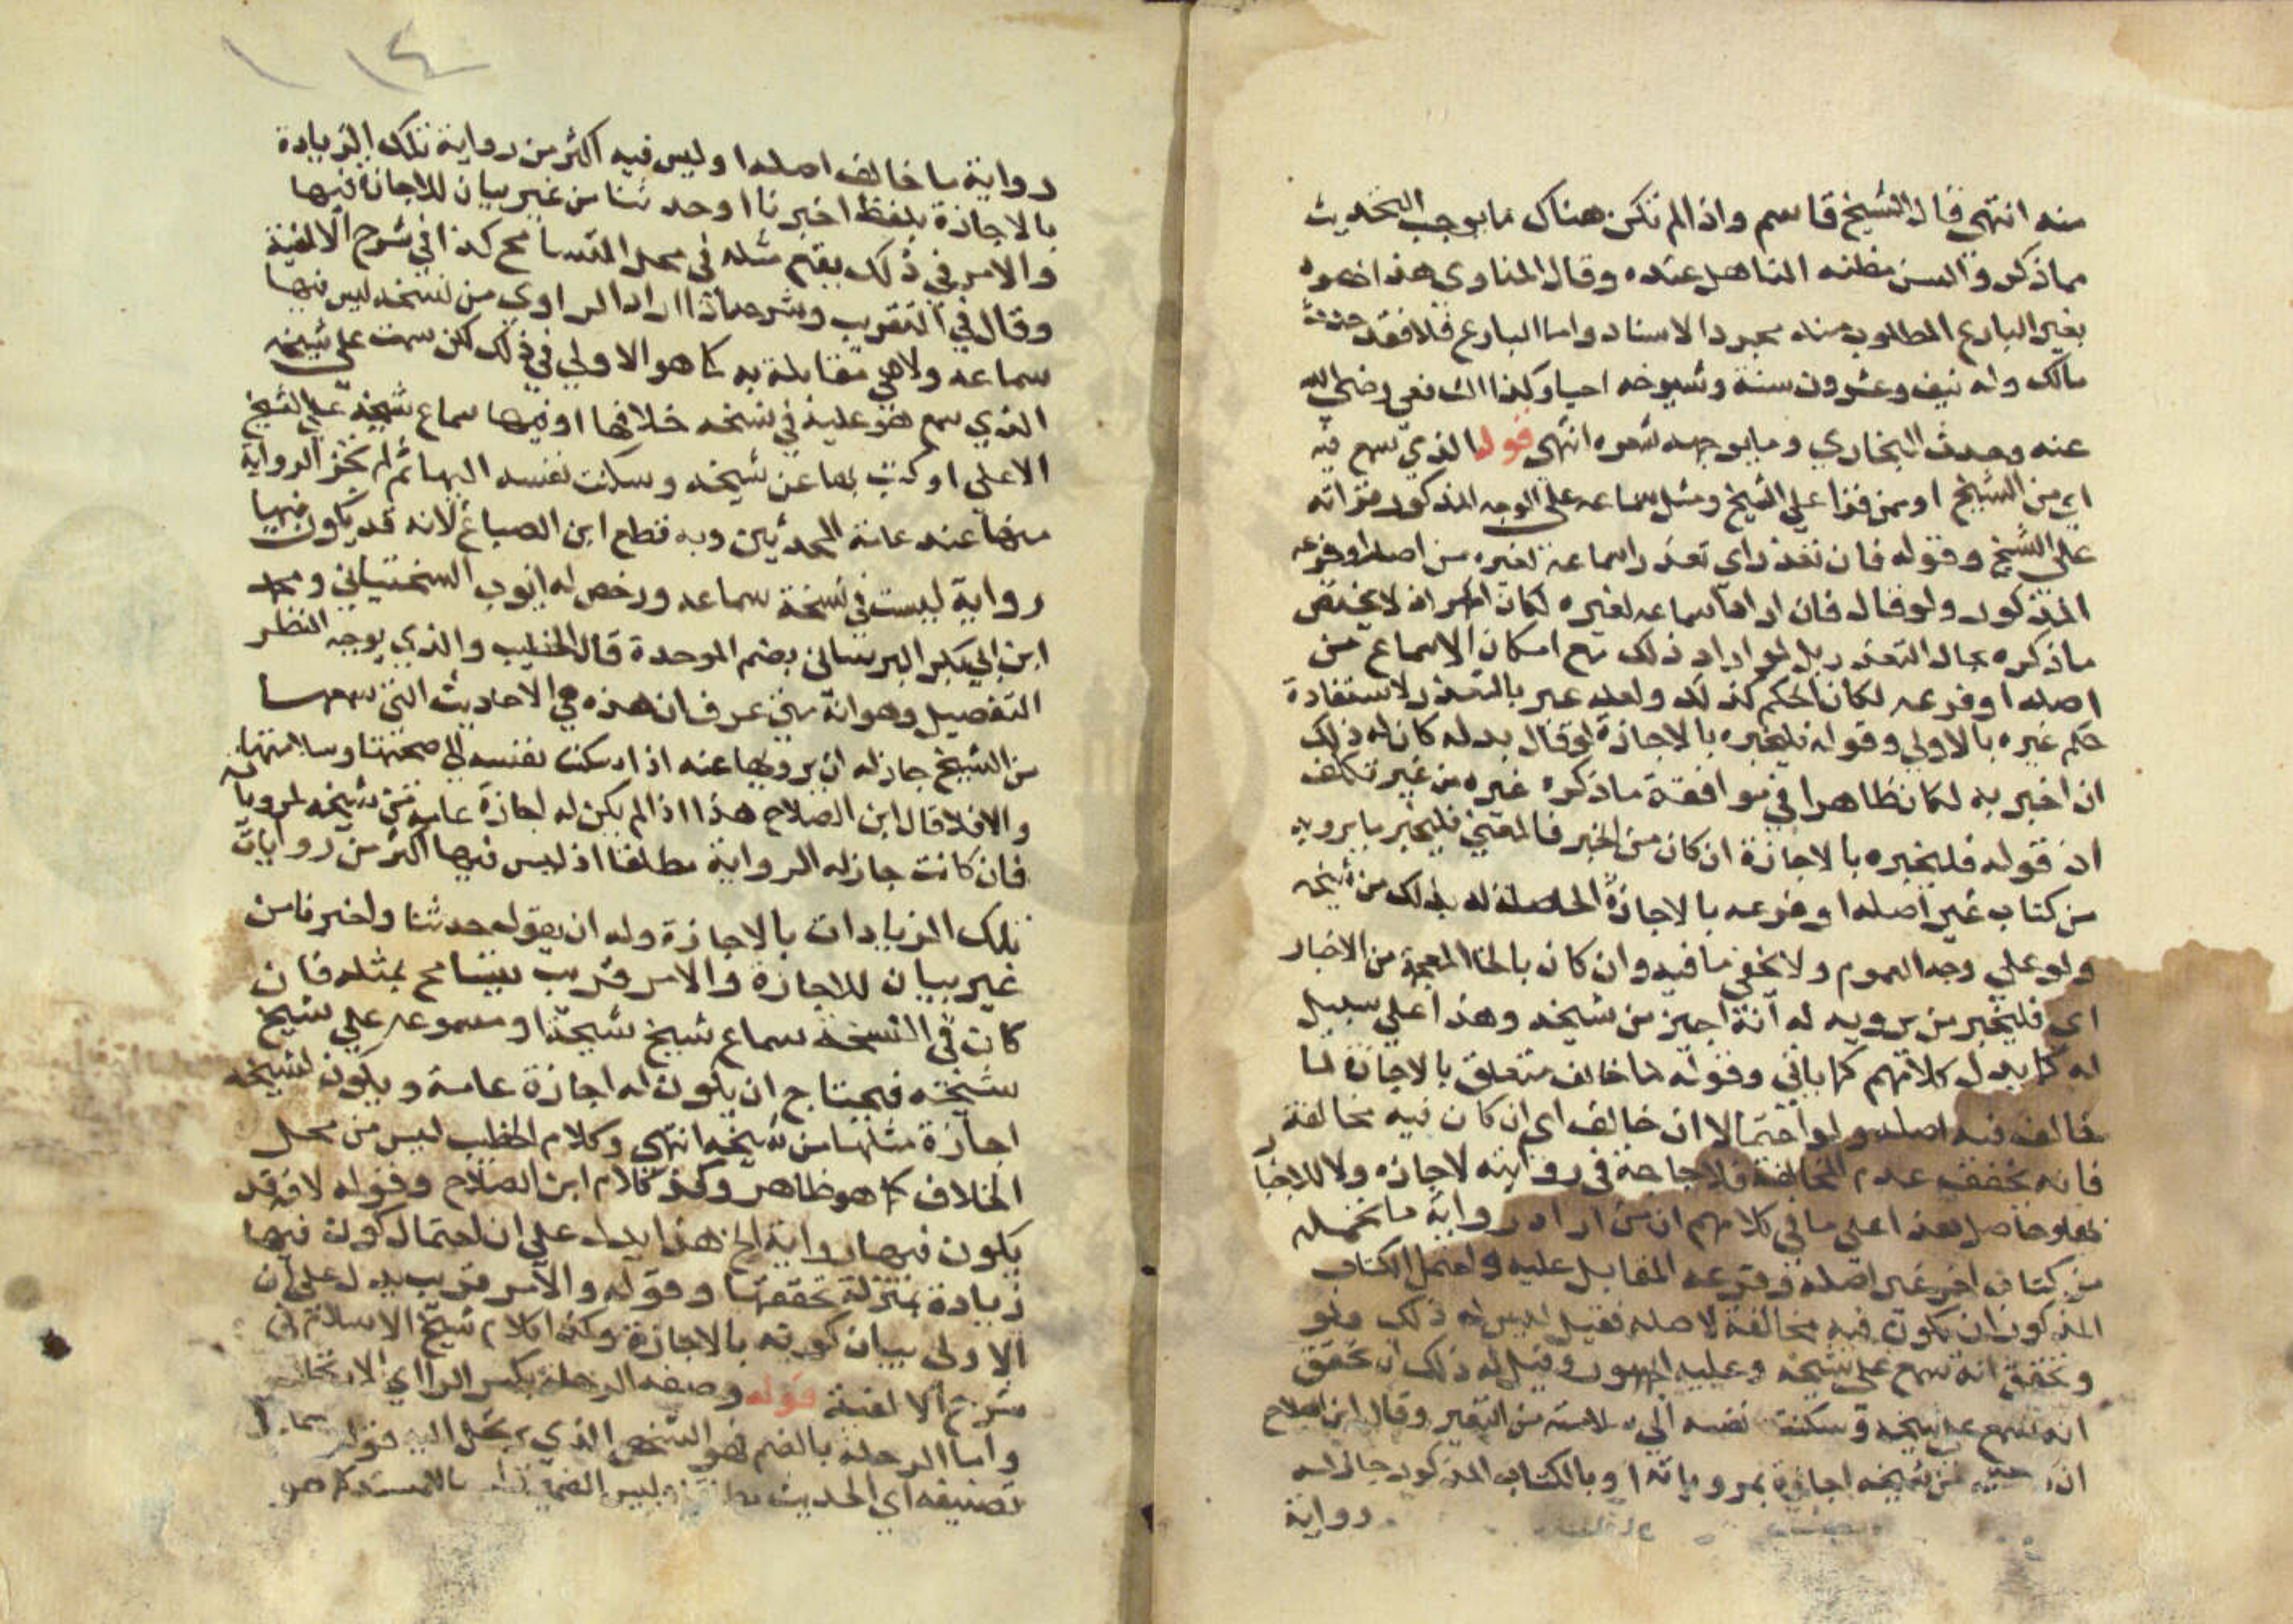 منه انتهى قال الشيخ قاسم واذا لم تكن هناك ما يوجب التحديث
مما ذكر فالسن مظنه التاهل عنده وقال المناوي هذا اضموه
بغير البارع المطلوب منه مجرد الاسناد واما البارع فلا فقد حدث
مالك وله نيف وعشرون سنة وشيوخه احيا وكذا الشافعي رضي الله
عنه وحدث البخاري وما بوجهه شعره انتهى قوله الذي سمع فيه
اي من الشيخ او ممن قرا على الشيخ ومثل سماعه على الوجه المذكور قراته
على الشيخ وقوله فان تعذر اي تعذر اسماعه لغيره من اصله او فرعه
المذكور ولو قال فان اراد اسماعه لغيره لكان اظهر اذ لا يختص
ما ذكره بحال التعذر بل لو اراد ذلك مع امكان الاسماع من
اصله او فرعه لكان الحكم كذلك ولعله عبر بالتعذر لاستفادة
حكم غيره بالاولي وقوله فليخبره بالاجازة لو قال بدله كان له ذلك
ان اخبر به لكان ظاهرا في موافقة ما ذكره غيره من غير تكلف
اذ قوله فليخبره بالاجازة ان كان من الخبر فالمعنى فليخبر بما يرويه
من كتاب غير اصله او فرعه بالاجازة الحاصلة له بذلك من شيخه
ولو على وجه العموم ولا يخفي ما فيه وان كان بالخا المعجمة من الاخبار
اي فليخبر من يرويه له انه اجيز من شيخه وهذا على سبيل
له كما يدل كلامهم كما ياتي وقوله لما خالف متعلق بالاجازة لما
خالف فيه اصله ولو احتمالا ان خالف اي ان كان فيه مخالفة
فانه تحقق عدم المخالفة فلا حاجة في روايته لاجازه ولا للاخبار
بها وحاصل هذا على ما في كلامهم ان من اراد رواية ما تحمله
من كتاب اخر غير اصله وفرعه المقابل عليه واحتمل الكتاب
المذكور ان يكون فيه مخالفة لاصله فقيل ليس له ذلك ولو
وتحقق انه سمع على شيخه وعليه الجمهور وقيل له ذلك ان تحقق
انه سمع على شيخه وسكنت نفسه الى سلامته من التغير وقال ابن الصلاح
ان من شيخه اجازة بمروياته او بالكتاب المذكور جاز له
رواية
١٤
رواية ما خالف اصله اوليس فيه اكثر من رواية تلك الزيادة
بالاجازة بلفظ اخبرنا او حدثنا من غير بيان للاجازة فيها
والامر في ذلك يقع مثله في محل التسامح كذا في شرح الالفية
وقال في التقريب وشرحه اذا اراد الراوي من نسخة ليس فيها
سماعه ولا هي مقابلة به كما هو الاولي في ذلك لكن سمت على شيخه
الذي سمع هو عليه في نسخه خلافها او فيها سماع شيخه على الشيخ
الاعلى او كتب بها عن شيخه وسكنت نفسه اليها ثم لم تجز الرواية
منها عند عامة المحدثين وبه قطع ابن الصباغ لانه قد يكون فيها
رواية ليست في نسخة سماعه ورخص له ايوب السختياني ومحمد
ابن ابي بكر البرساني بضم الموحدة قال الخطيب والذي يوجبه النظر
التفصيل وهو انه متى عرف ان هذه هي الاحاديث التي سمعها
من الشيخ جاز له ان يرويها عنه اذا سكنت نفسه الى صحتها وسلامتها
والا فلا قال ابن الصلاح هذا اذا لم يكن له اجازة عامة من شيخه لمروياته
فان كانت جاز له الرواية مطلقا اذ ليس فيها اكثر من روايات
تلك الزيادات بالاجازة وله ان يقوله حدثنا واخبرنا من
غير بيان للاجازة والامر قريب يتسامح بمثله فان
كان في النسخة سماع شيخ شيخه او مسموعه على شيخ
شيخه فيحتاج ان يكون له اجازة عامة ويكون لشيخه
اجازة مثلها من شيخه انتهى وكلام الخطيب ليس من محل
الخلاف كما هو ظاهر وكذا كلام ابن الصلاح وقوله لانه قد
يكون فيها رواية الخ هذا يدل على ان احتمال كون فيها
زيادة بمنزلة تحققها وقوله والامر قريب يدل على ان
الاولى بيان كونه بالاجازة وكذا كلام شيخ الاسلام في
شرح الالفية قوله وصفه الرحلة بكسر الرا اي الارتحال
واما الرحله بالضم فهو الشخص الذي يرتحل اليه قوله
تصنيفه اي الحديث وليس الضمير كما هو